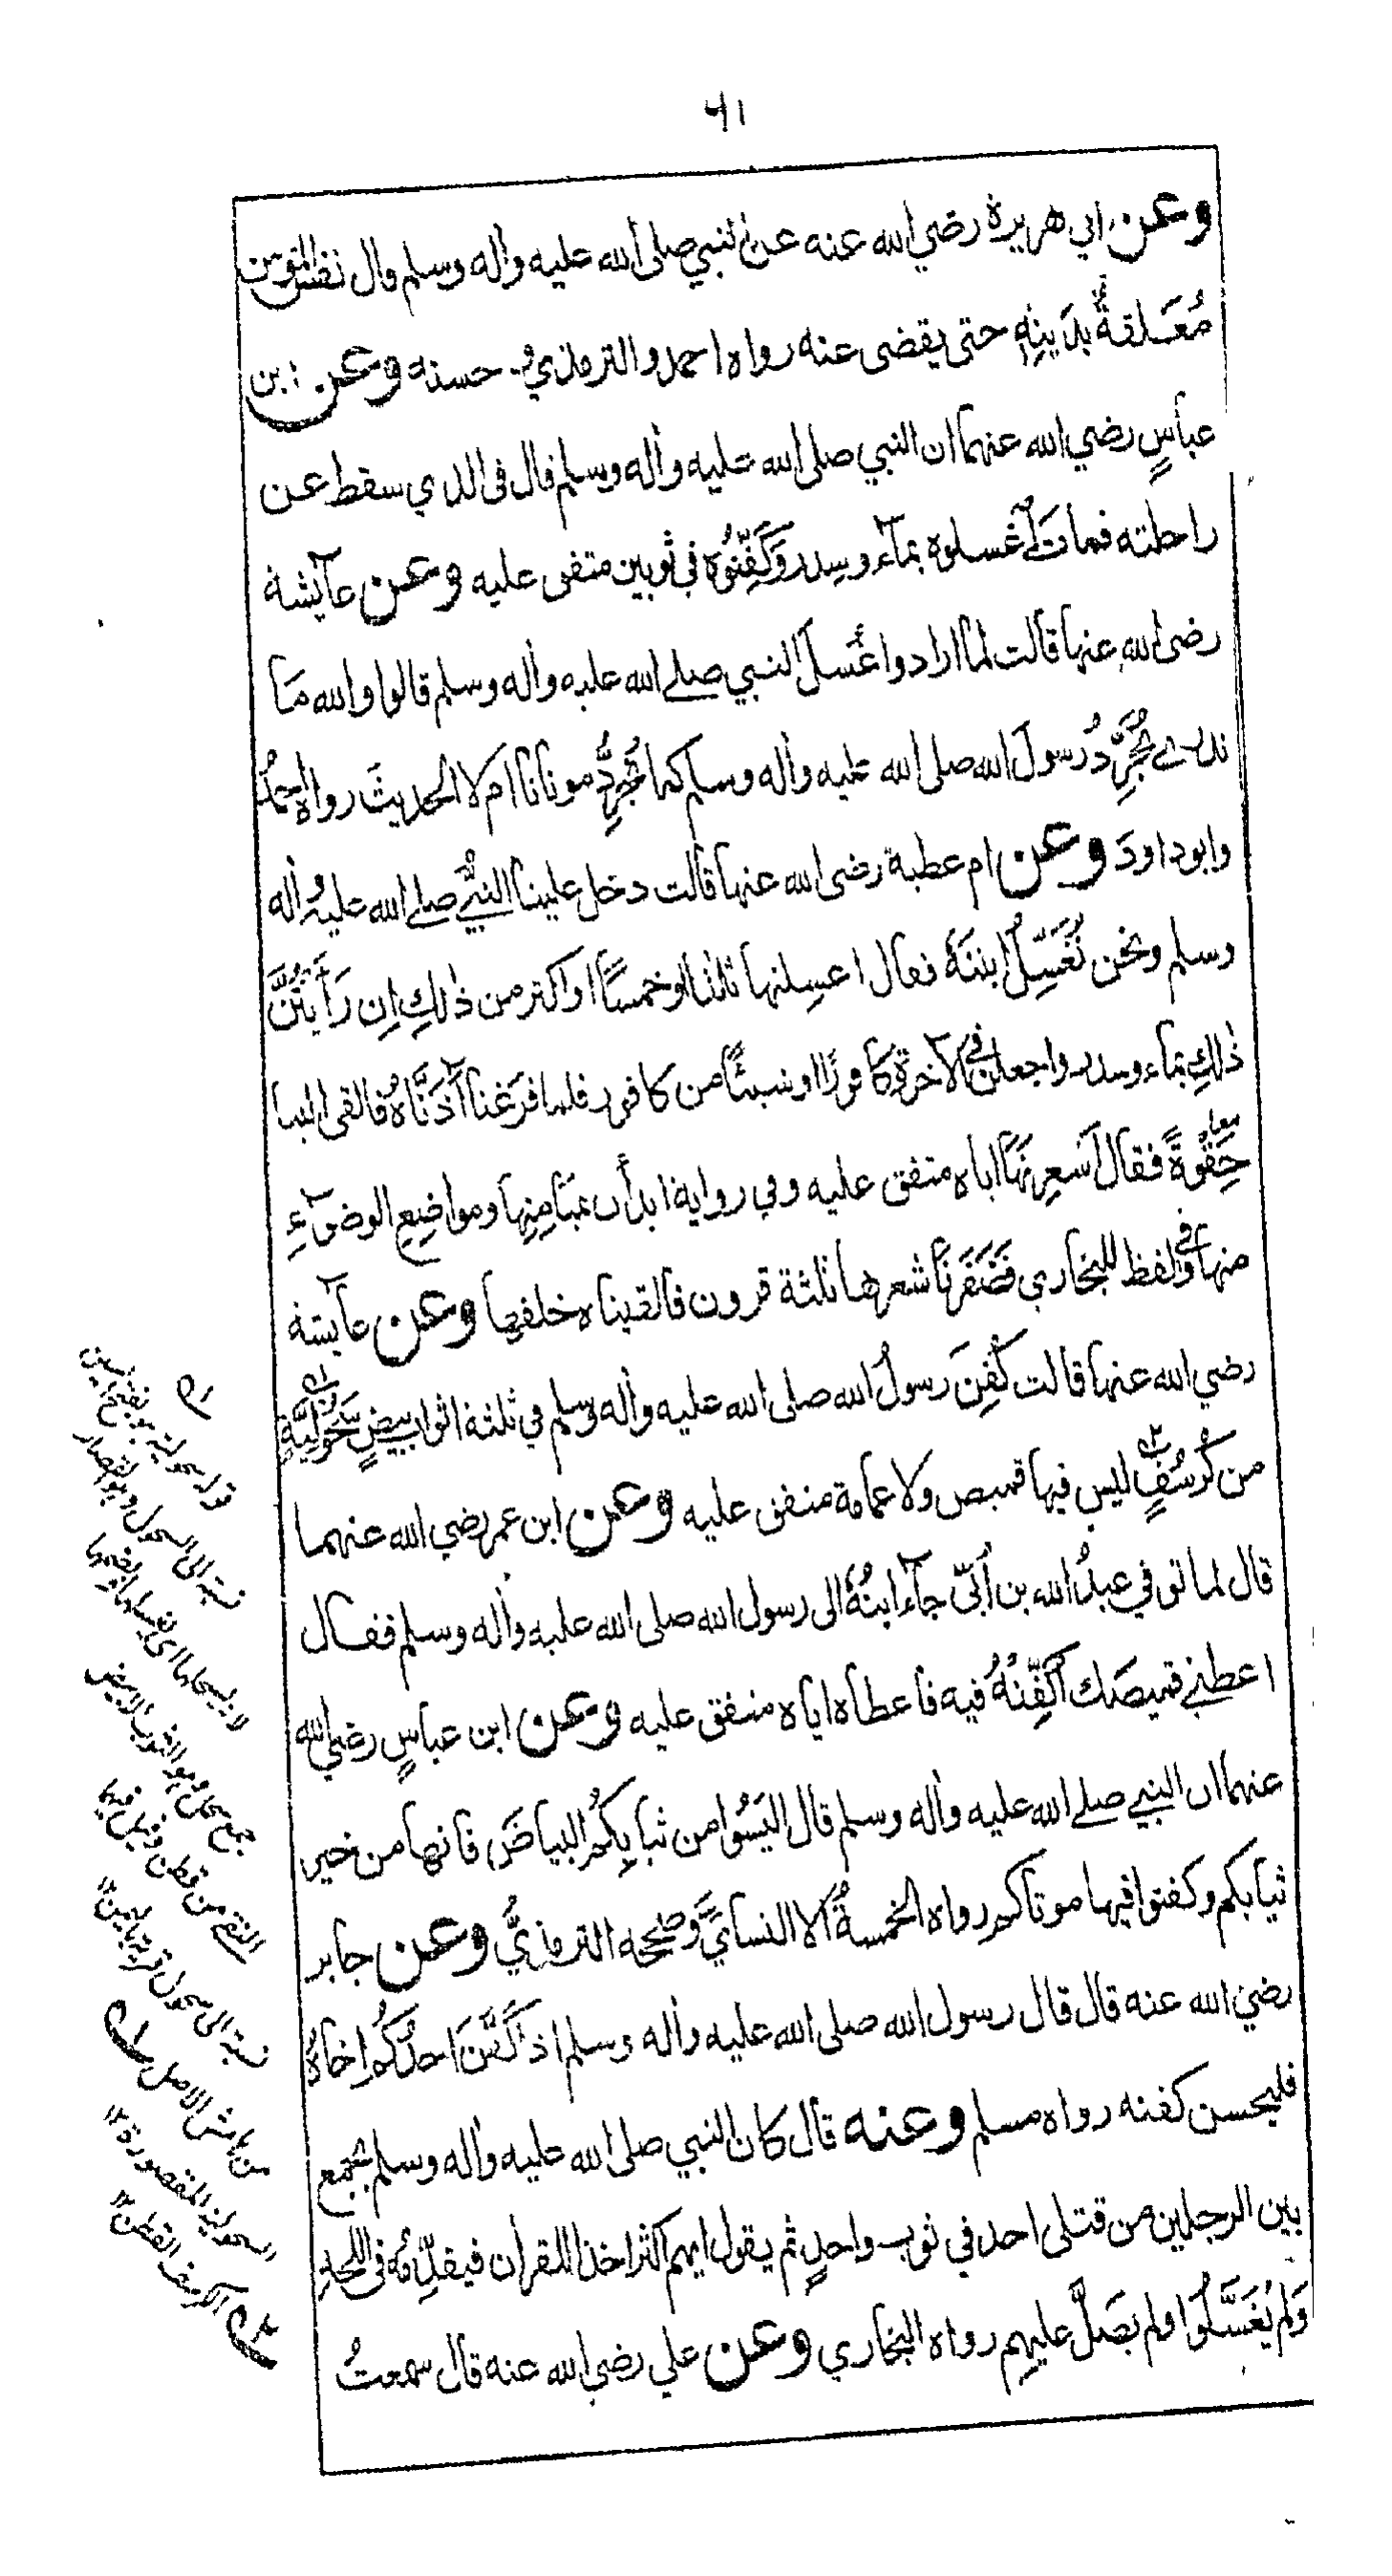 ٦١
وعن ابي هريرة رضي الله عنه عن النبي صلى الله عليه واله وسلم قال نفس المؤمن
مُعَلقةٌ بدَينِهِ حتى يقضى عنه رواه احمد والترمذي و حسنه وعن ابن
عباسٍ رضي الله عنهما ان النبي صلى الله عليه واله وسلم قال فى الذي سقط عن
راحلته فمات اغسلوه بمآء وسِدر وَكَفِّنُوه في ثوبين متفق عليه وعن عآيشة
رضى الله عنها قالت لما ارادوا غُسلَ النبي صلى الله عليه واله وسلم قالوا والله مَا
ندرے نُجَرِّدُ رسولَ الله صلى الله عليه واله وسلم كما نُجَرِّدُ موتانا ام لا الحديثَ رواه احمدُ
وابوداودَ وعن ام عطية رضى الله عنها قالت دخل علينا النبيُّ صلے الله عليه واله
وسلم ونحن نُغَسِّلُ ابنتَهٗ فقال اغسِلنها ثلثا او خمسًا او اكثر من ذٰلكِ اِن رَأَيتُنَّ
ذٰلكِ بمآء وسدر واجعلن فى الآخرةِ كافورًا او شيئًا من كافور فلما فَرَغنا آذَنَّاهُ فالقى الينا
حِقْوَهٗ فقال اَشعِرنَهَا اياه متفق عليه وفي رواية ابدأن بمَيَامِنِها ومواضِعِ الوضوٓءِ
منها وفي لفظ للبخاري فَضَفَرنَا شعرها ثلثة قرون فالقيناه خلفها وعن عآيشة
رضي الله عنها قالت كُفِنَ رسولُ الله صلى الله عليه واله وسلم في ثلثة اثواب بيضٍ سَحُوليَّةٍ
من كُرسُفٍ ليس فيها قميص ولا عمامة متفق عليه وعن ابن عمر رضي الله عنهما
قال لما توفي عبدُ الله بن اُبَيّ جآء ابنُهٗ الى رسول الله صلى الله عليه واله وسلم فقال
اعطنے قميصَك اُكَفِّنْهُ فيه فاعطاه اياه متفق عليه وعن ابن عباسٍ رضي الله
عنهما ان النبي صلے الله عليه واله وسلم قال البَسُوا من ثيابِكُم البياضَ فانها من خير
ثيابكم وكفنوا فيها موتاكم رواه الخمسةُ الا النسايَّ وصححه الترمذيُّ وعن جابر
رضي الله عنه قال قال رسول الله صلى الله عليه واله وسلم اذا كَفَّنَ احدُكُم اخاهُ
فليحسن كفنه رواه مسلم وعنه قال كان النبي صلى الله عليه واله وسلم يجمع
بين الرجلين من قتلى احد في ثوب واحدٍ ثم يقول ايهم اكثر اخذا للقران فيقدِّمُهٗ فى اللحدِ
وَلم يُغَسَّلُوا ولم يصَلَّ عليهِم رواه البخاري وعن علي رضي الله عنه قال سمعتُ
١
قوله سحولية هو بفتح السين
نسبة الى السحول وهو القصار
لانه يسحلها اي يغسلها او بضمها
جمع سحل وهو الثوب الابيض
النقي من قطن وقيل فيها
نسبة الى سحول قرية باليمن ١٢
من هامش الاصل ١
السحولية المقصورة ١٢
٢ الكرسف القطن ١٢